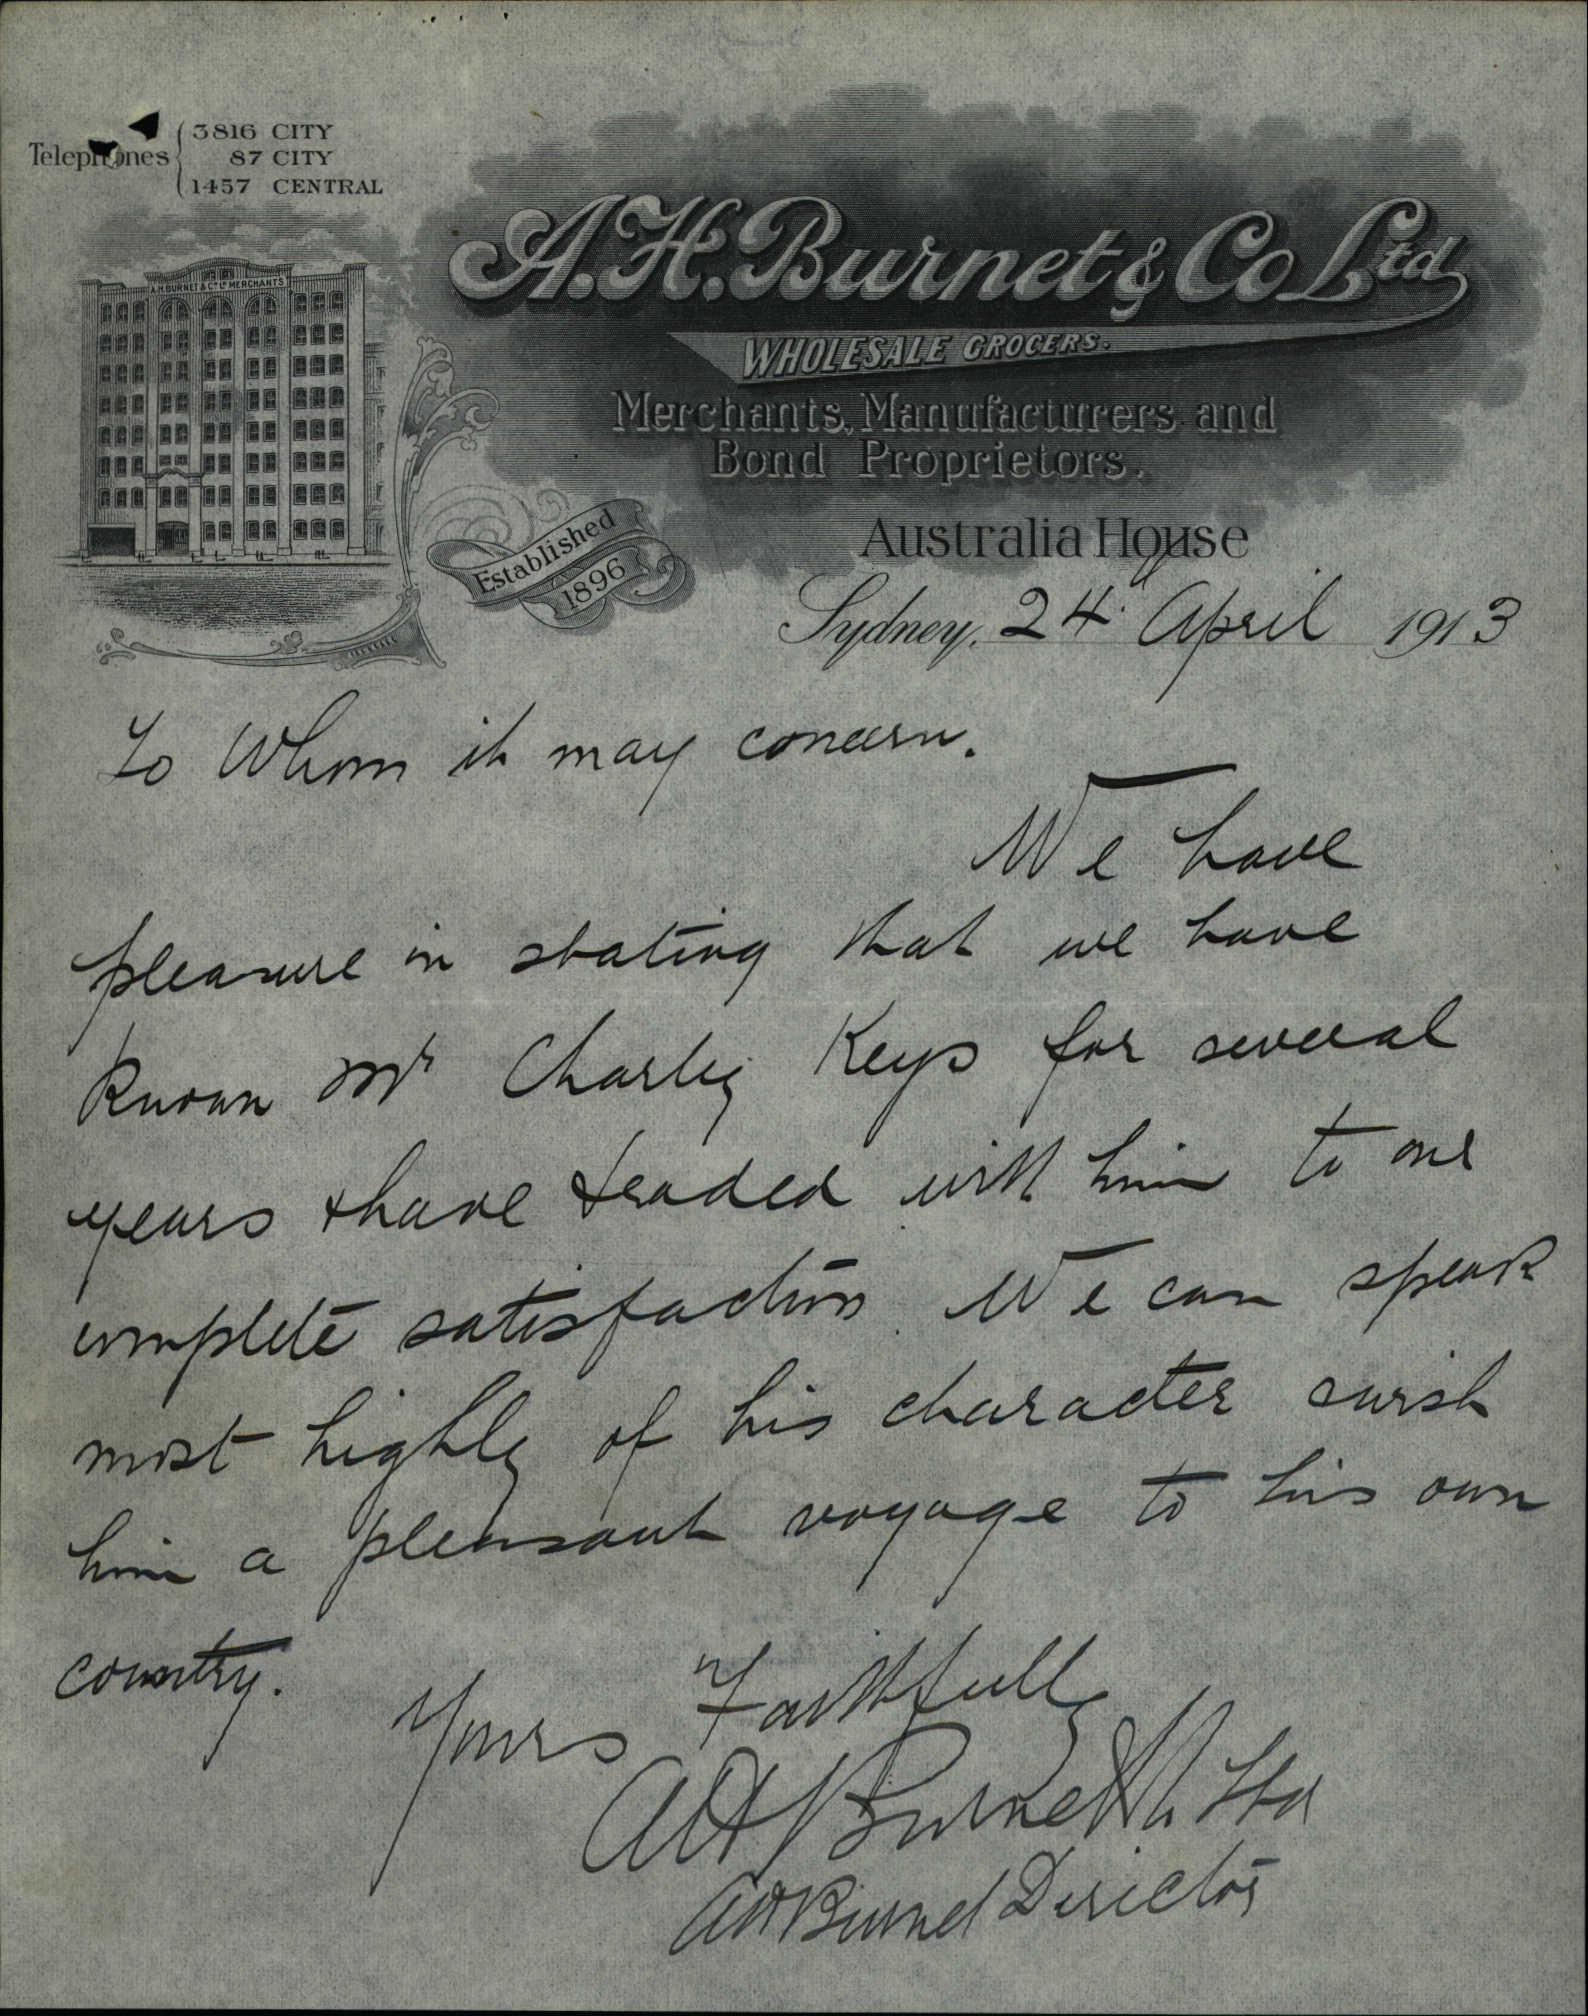 Telephones
3816 CITY
87 CITY
1457 CENTRAL
A.H. Burnet & Co Ltd
WHOLESALE GROCERS.
Merchants, Manufacturers and
Bond Proprietors.
A.H. BURNET & Co Ld MERCHANTS
Established
1896
Australia House
Sydney, 24 April 1913
To Whom it may concern.
We have
pleasure in stating that we have
known Mr Charley Keys for several
years & have traded with him to our
complete satisfaction. We can speak
most highly of his character & wish
him a pleasant voyage to his own
country.
Yours Faithfully
AH Burnet & Co Ltd
AH Burnet Director